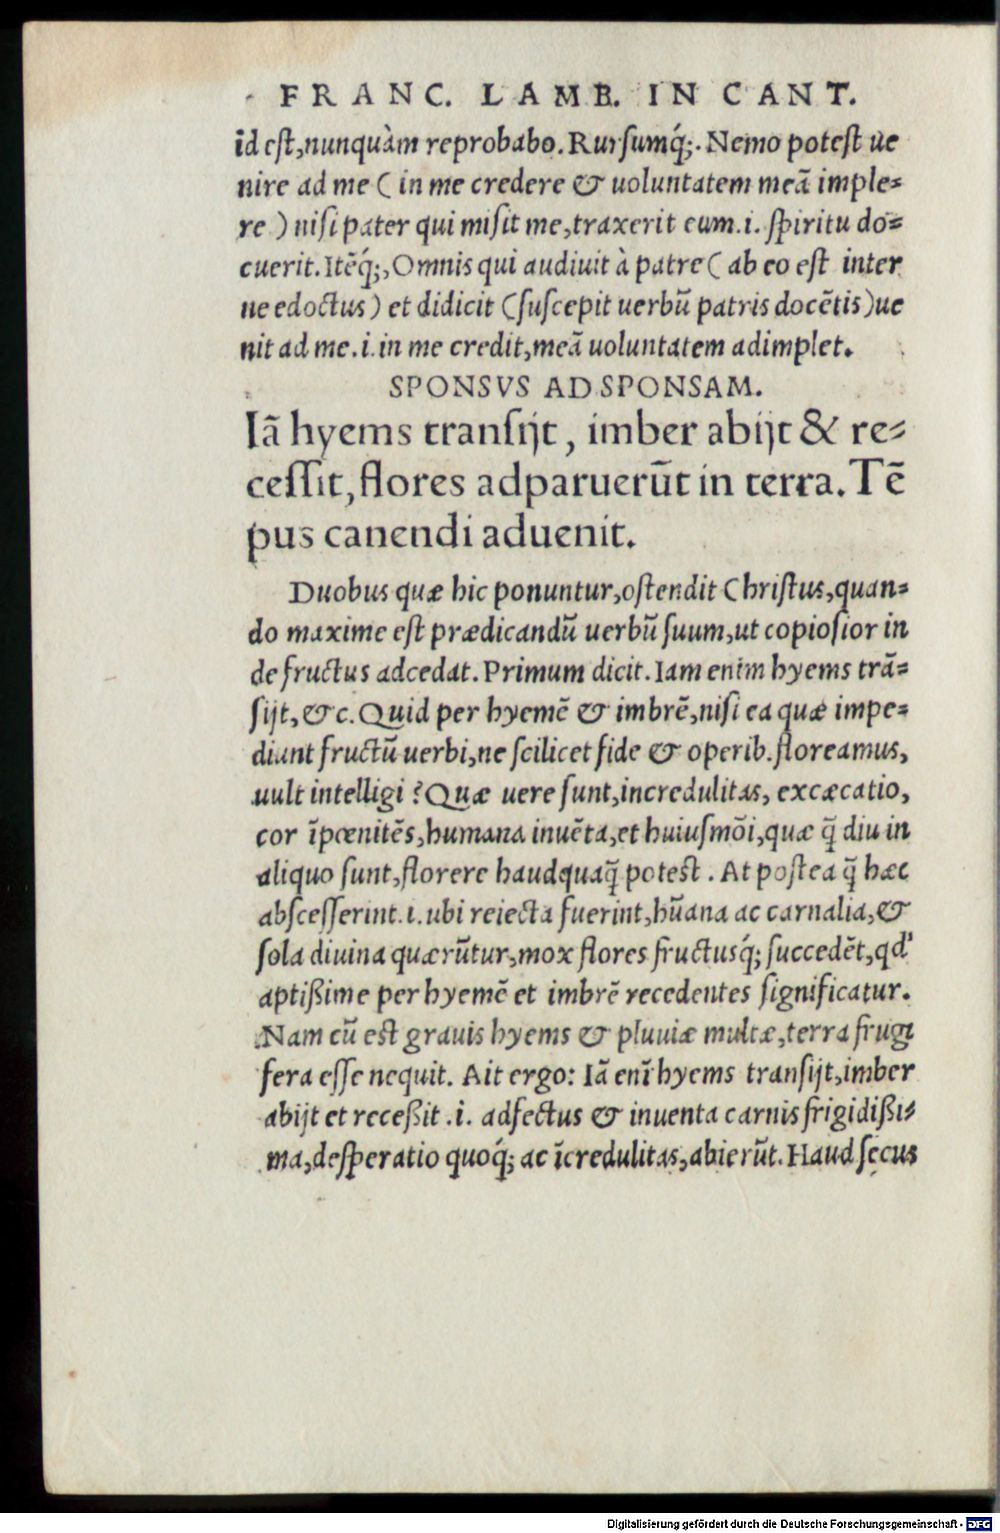 FRANC. LAMB. IN CANT.
id est, nunquàm reprobabo. Rursumq́;. Nemo potest ue
nire ad me ( in me credere & uoluntatem meā imple=
re ) nisi pater qui misit me, traxerit eum .i. spiritu do=
cuerit. Itēq́;, Omnis qui audiuit à patre ( ab eo est inter
ne edoctus ) et didicit ( suscepit uerbū patris docētis ) ue
nit ad me .i. in me credit, meā uoluntatem adimplet.
SPONSVS AD SPONSAM.
Iā hyems transijt, imber abijt & re=
cessit, flores adparuerūt in terra. Tē
pus canendi aduenit.
Duobus quæ hic ponuntur, ostendit Christus, quan=
do maxime est prædicandū uerbū suum, ut copiosior in
de fructus adcedat. Primum dicit. Iam enim hyems trā=
sijt, &c. Quid per hyemē & imbrē, nisi ea quæ impe=
diunt fructū uerbi, ne scilicet fide & operib. floreamus,
uult intelligi ? Quæ uere sunt, incredulitas, excæcatio,
cor īpœnitēs, humana inuēta, et huiusmōi, quæ q̄ diu in
aliquo sunt, florere haudquaq̄ potest . At postea q̄ hæc
abscesserint .i. ubi reiecta fuerint, hūana ac carnalia, &
sola diuina quærūtur, mox flores fructusq́; succedēt, qd'
aptißime per hyemē et imbrē recedentes significatur.
Nam cū est grauis hyems & pluuiæ multæ, terra frugi
fera esse nequit. Ait ergo: Iā enī hyems transijt, imber
abijt et receßit .i. adfectus & inuenta carnis frigidißi=
ma, desperatio quoq́; ac īcredulitas, abierūt. Haud secus
Digitalisierung gefördert durch die Deutsche Forschungsgemeinschaft - DFG